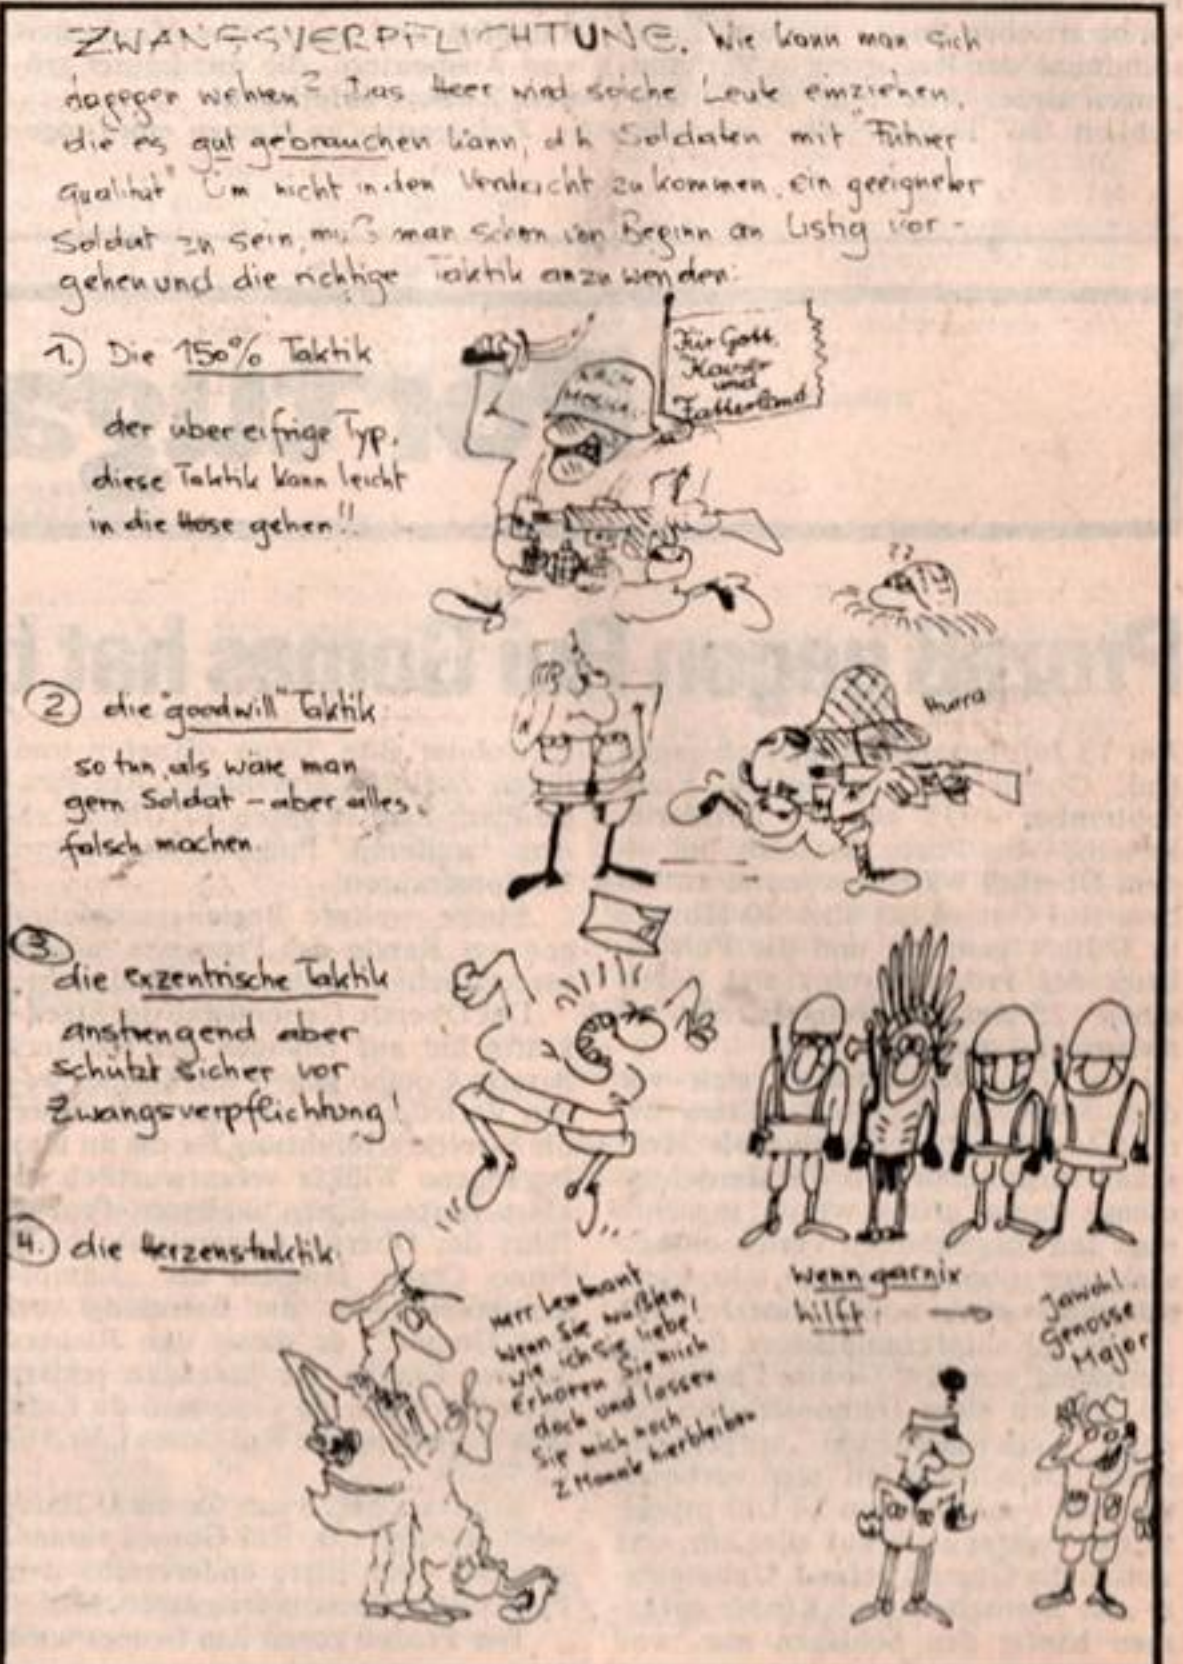 ZWANGSVERPFLICHTUNG. Wie kann man sich
dagegen wehren? Das Heer wird solche Leute einziehen,
die es gut gebrauchen kann, d h Soldaten mit "Führer
qualität" Um nicht in den Verdacht zu kommen, ein geeigneter
Soldat zu sein, muß man schon von Beginn an Listig vor-
gehen und die richtige Taktik anzuwenden:
1.) Die 150% Taktik
der übereifrige Typ.
diese Taktik kann leicht
in die Hose gehen!!
Für Gott,
Kaiser
und
Vatterland
??
2) die "goodwill" Taktik
so tun, als wäre man
gern Soldat - aber alles
falsch machen
Hurra
3) die exzentrische Taktik
anstrengend aber
schützt sicher vor
Zwangsverpflichtung!
4.) die Herzenstaktik
Herr Leutnant
wenn Sie wüßten,
wie ich Sie liebe!
Erhören Sie mich
doch und lassen
Sie mich noch
2 Monate hierbleiben
wenn garnix
hilft →
Jawohl
Genosse
Major